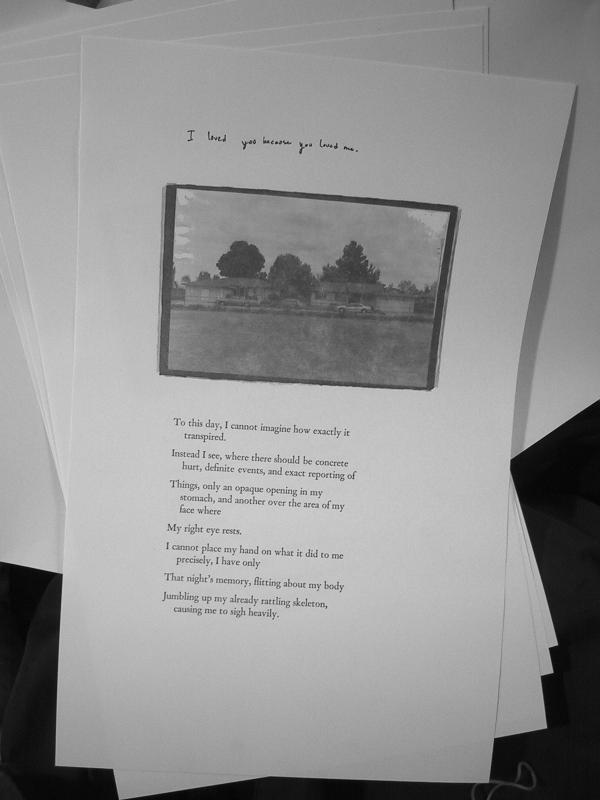 I loved you because you loved me.
To this day, I cannot imagine how exactly it
transpired.
Instead I see, where there should be concrete
hurt, definite events, and exact reporting of
Things, only an opaque opening in my
stomach, and another over the area of my
face where
My right eye rests.
I cannot place my hand on what it did to me
precisely, I have only
That night's memory, flitting about my body
Jumbling up my already rattling skeleton,
causing me to sigh heavily.